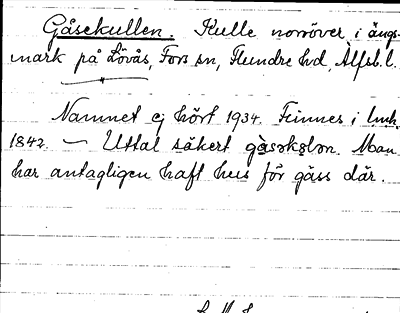 Gåsekullen. Kulle norröver i ängs-
mark på Lövås, Fors sn, Flundre hd, Älfsb. l.
Namnet ej hört 1934. Finnes i lmh.
1842. — Uttal säkert gåsəkɵlən. Man
har antagligen haft hus för gäss där.